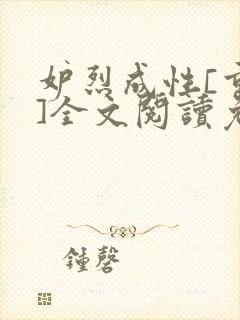 妒烈成性[
]全文閱讀
鍾磬